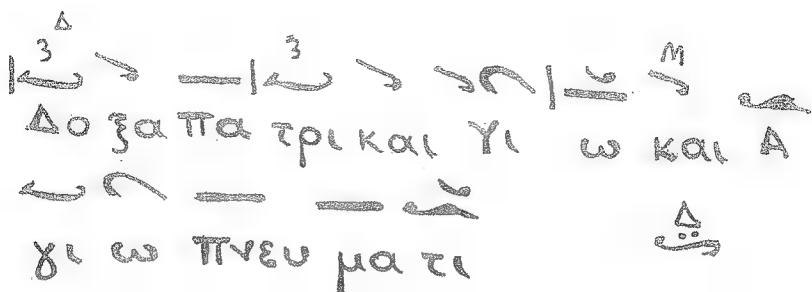 Δο ξα πα τρι και Υι ω και Α
γι ω πνευ μα τι